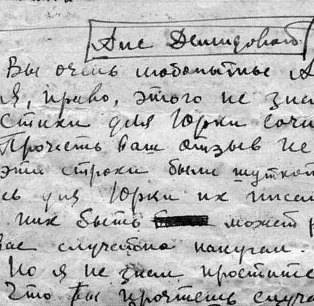 Ане Демидовой
Вы очень любопытные А
я, право, этого не знал
Стихи для Юрки сочи
Прочесть Ваш отзыв не
эти строки были шуткой
сь для Юрки их писал
них быть может
Вас случайно напугал.
Но я не знал простите
Что Вы прочтёшь случа